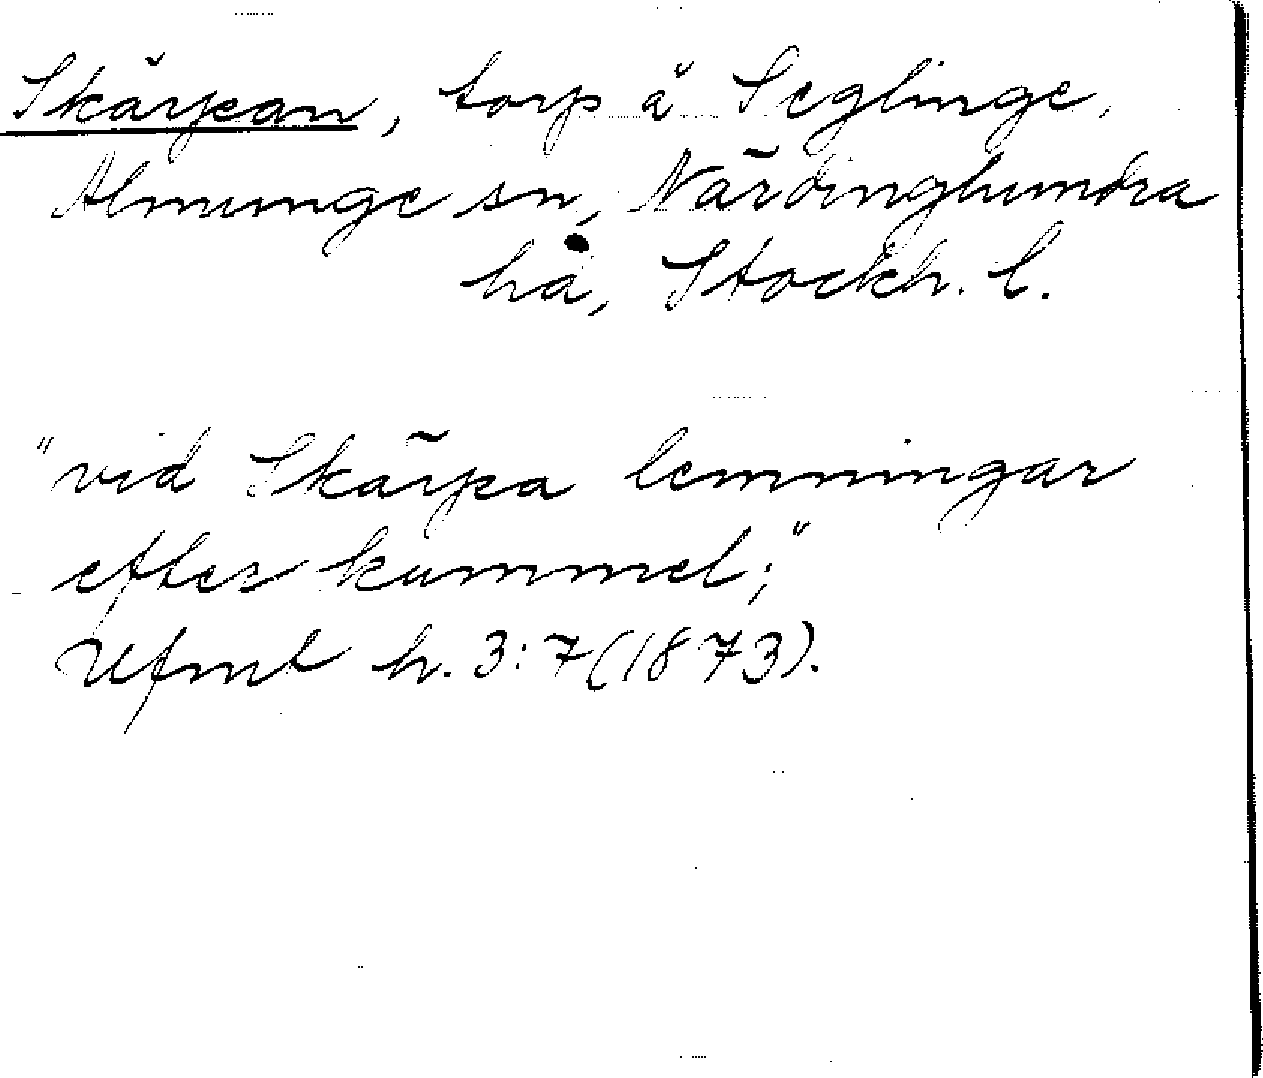 Skärpan, torp å Seglinge,
Almunge sn, Närdinghundra
hd, Stockh. l.
"vid Skärpa lemningar
efter kummel;"
Ufmt h. 3:7(1873).